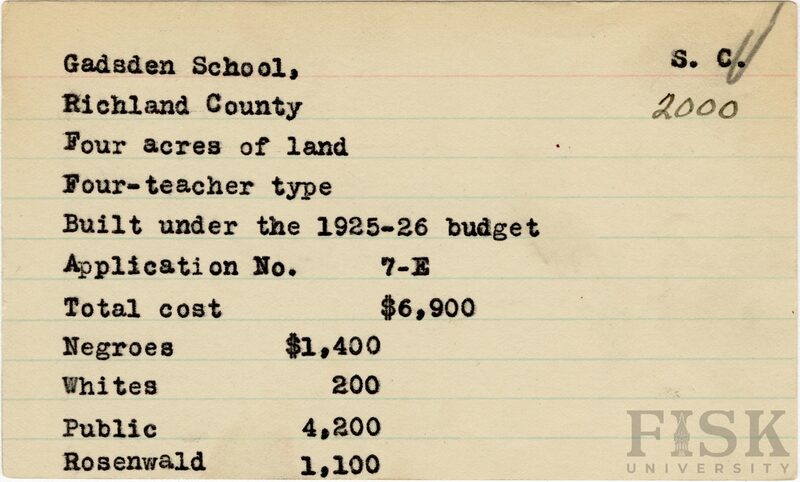 Gadsden School, S. C.
Richland County 2000
Four acres of land
Four-teacher type
Built under the 1925-26 budget
Application No. 7-E
Total cost $6,900
Negroes $1,400
Whites 200
Public 4,200
Rosenwald 1,100
FISK
UNIVERSITY